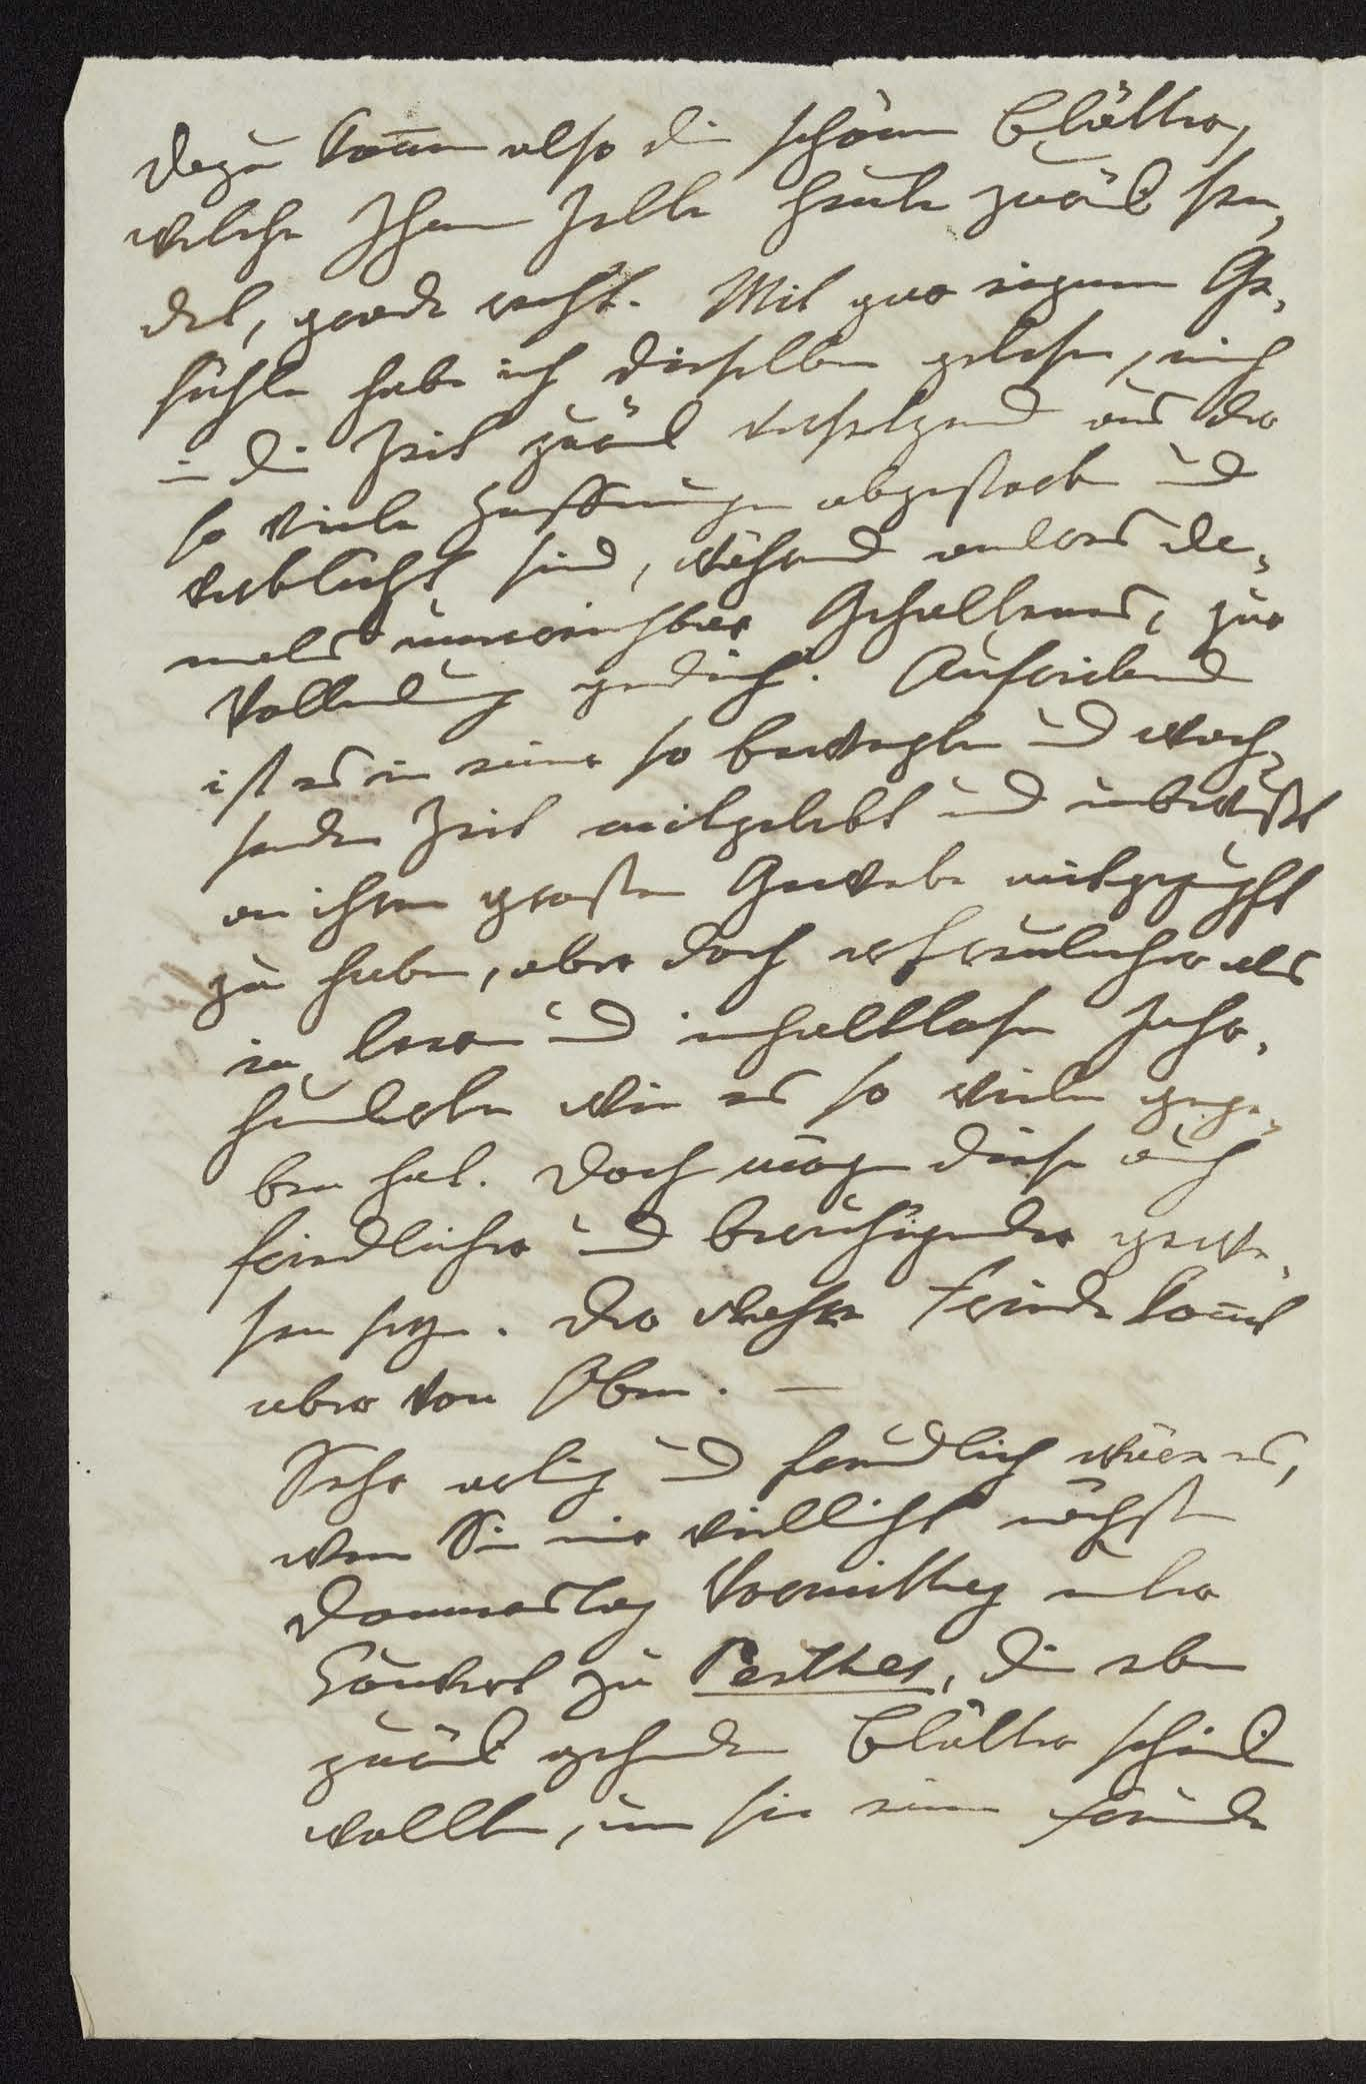 Dazu kom̅en also die schönen Blätter,
welche Ihnen Jette heute zurück sen,
det, gerade recht. Mit gar eigenem Ge,
fühle habe ich dieselben gelesen, mich
in die Zeit zurück versetzend aus der
so viele Hoffnungen abgestorben und
verblüht sind, während anderes da,
mals unerreichbar Gehaltenes, zur
Vollendung gedieh. Aufreibend
ist es in einer so bewegten und wech,
senden Zeit mitgelebt und unbewußt
an ihrem großen Gewebe mitgezupft
zu haben, aber doch erfreulicher als
in leeren und inhaltlosen Jahr,
hunderten wie es so viele gege,
ben hat. Doch mögen diese auch
friedlicher und beruhigender gewe,
sen seyn. Der wahre Friede kom̅t
aber von Oben. —
Sehr artig und freundlich wäre es,
wenn Sie mir vielleicht nächsten
Donnerstag Vormittag unter
Couvert zu Perthes, die eben
zurück gehenden Blätter schicken
wollten, um sie einem Freunde